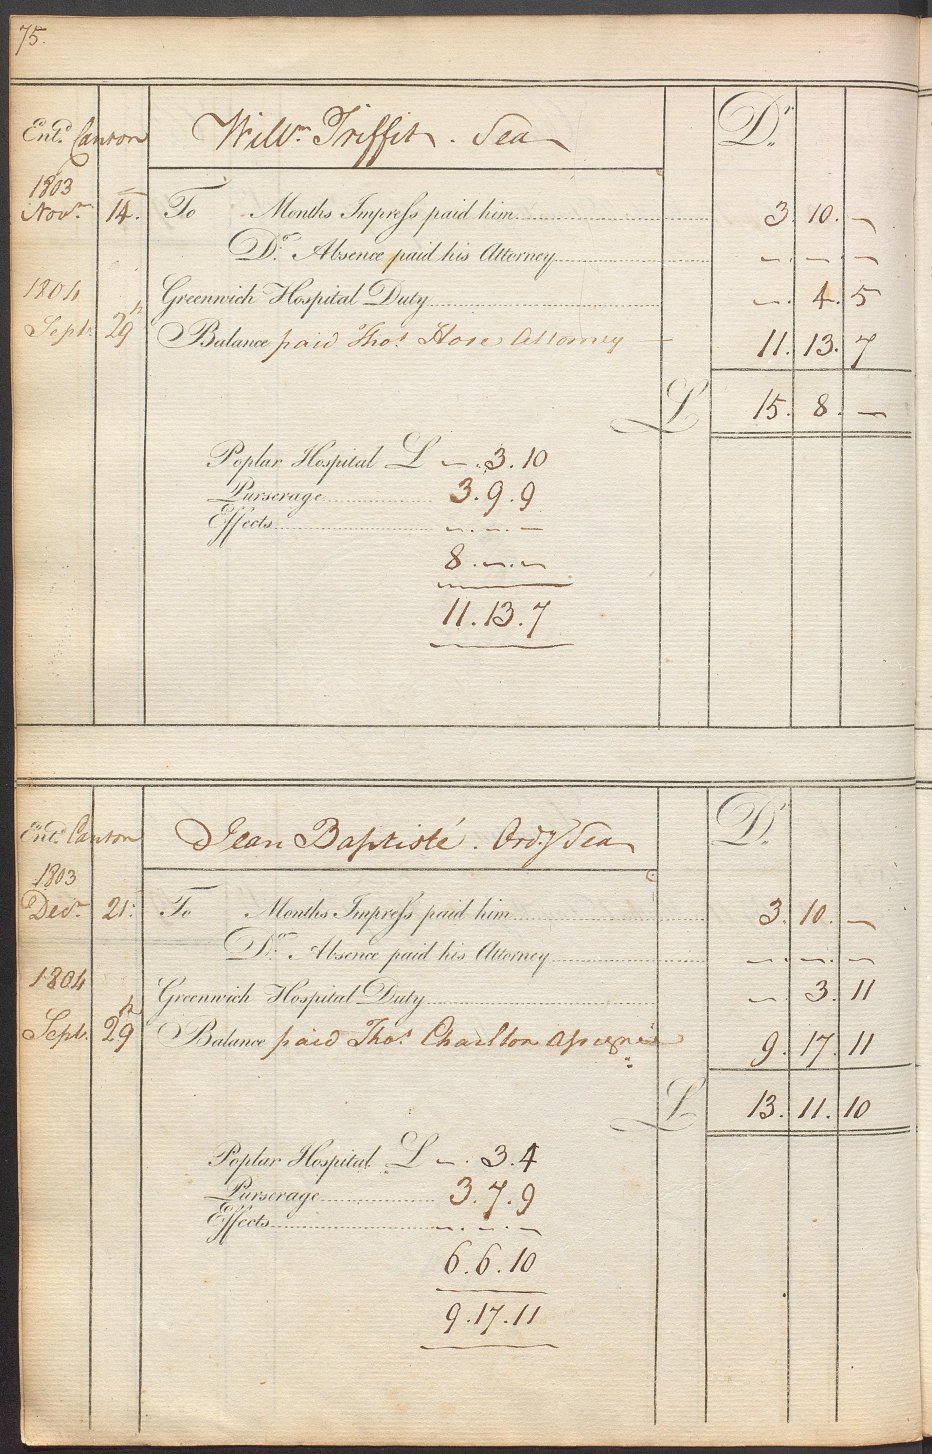 75.
Entd. Canton Willm. Triffit. Sea Dr.
1803
Novr. 14. To Months Impress paid him 3. 10. —
Do. Absence paid his Attorney —. —. —
1804 Greenwich Hospital Duty —. 4. 5
Sept. 29th Balance paid Thos. Hore Attorney — 11. 13. 7
£ 15. 8. —
Poplar Hospital £ —. 3. 10
Purserage 3. 9. 9
Effects —. —. —
8. —. —
11. 13. 7
Entd. Canton Jean Baptisté. Ordy Sea Dr.
1803
Decr. 21: To Months Impress paid him 3. 10. —
Do. Absence paid his Attorney —. —. —
1804 Greenwich Hospital Duty —. 3. 11
Sept. 29th Balance paid Thos. Charlton Assignee 9. 17. 11
£ 13. 11. 10
Poplar Hospital £ —. 3. 4
Purserage 3. 7. 9
Effects —. —. —
6. 6. 10
9. 17. 11